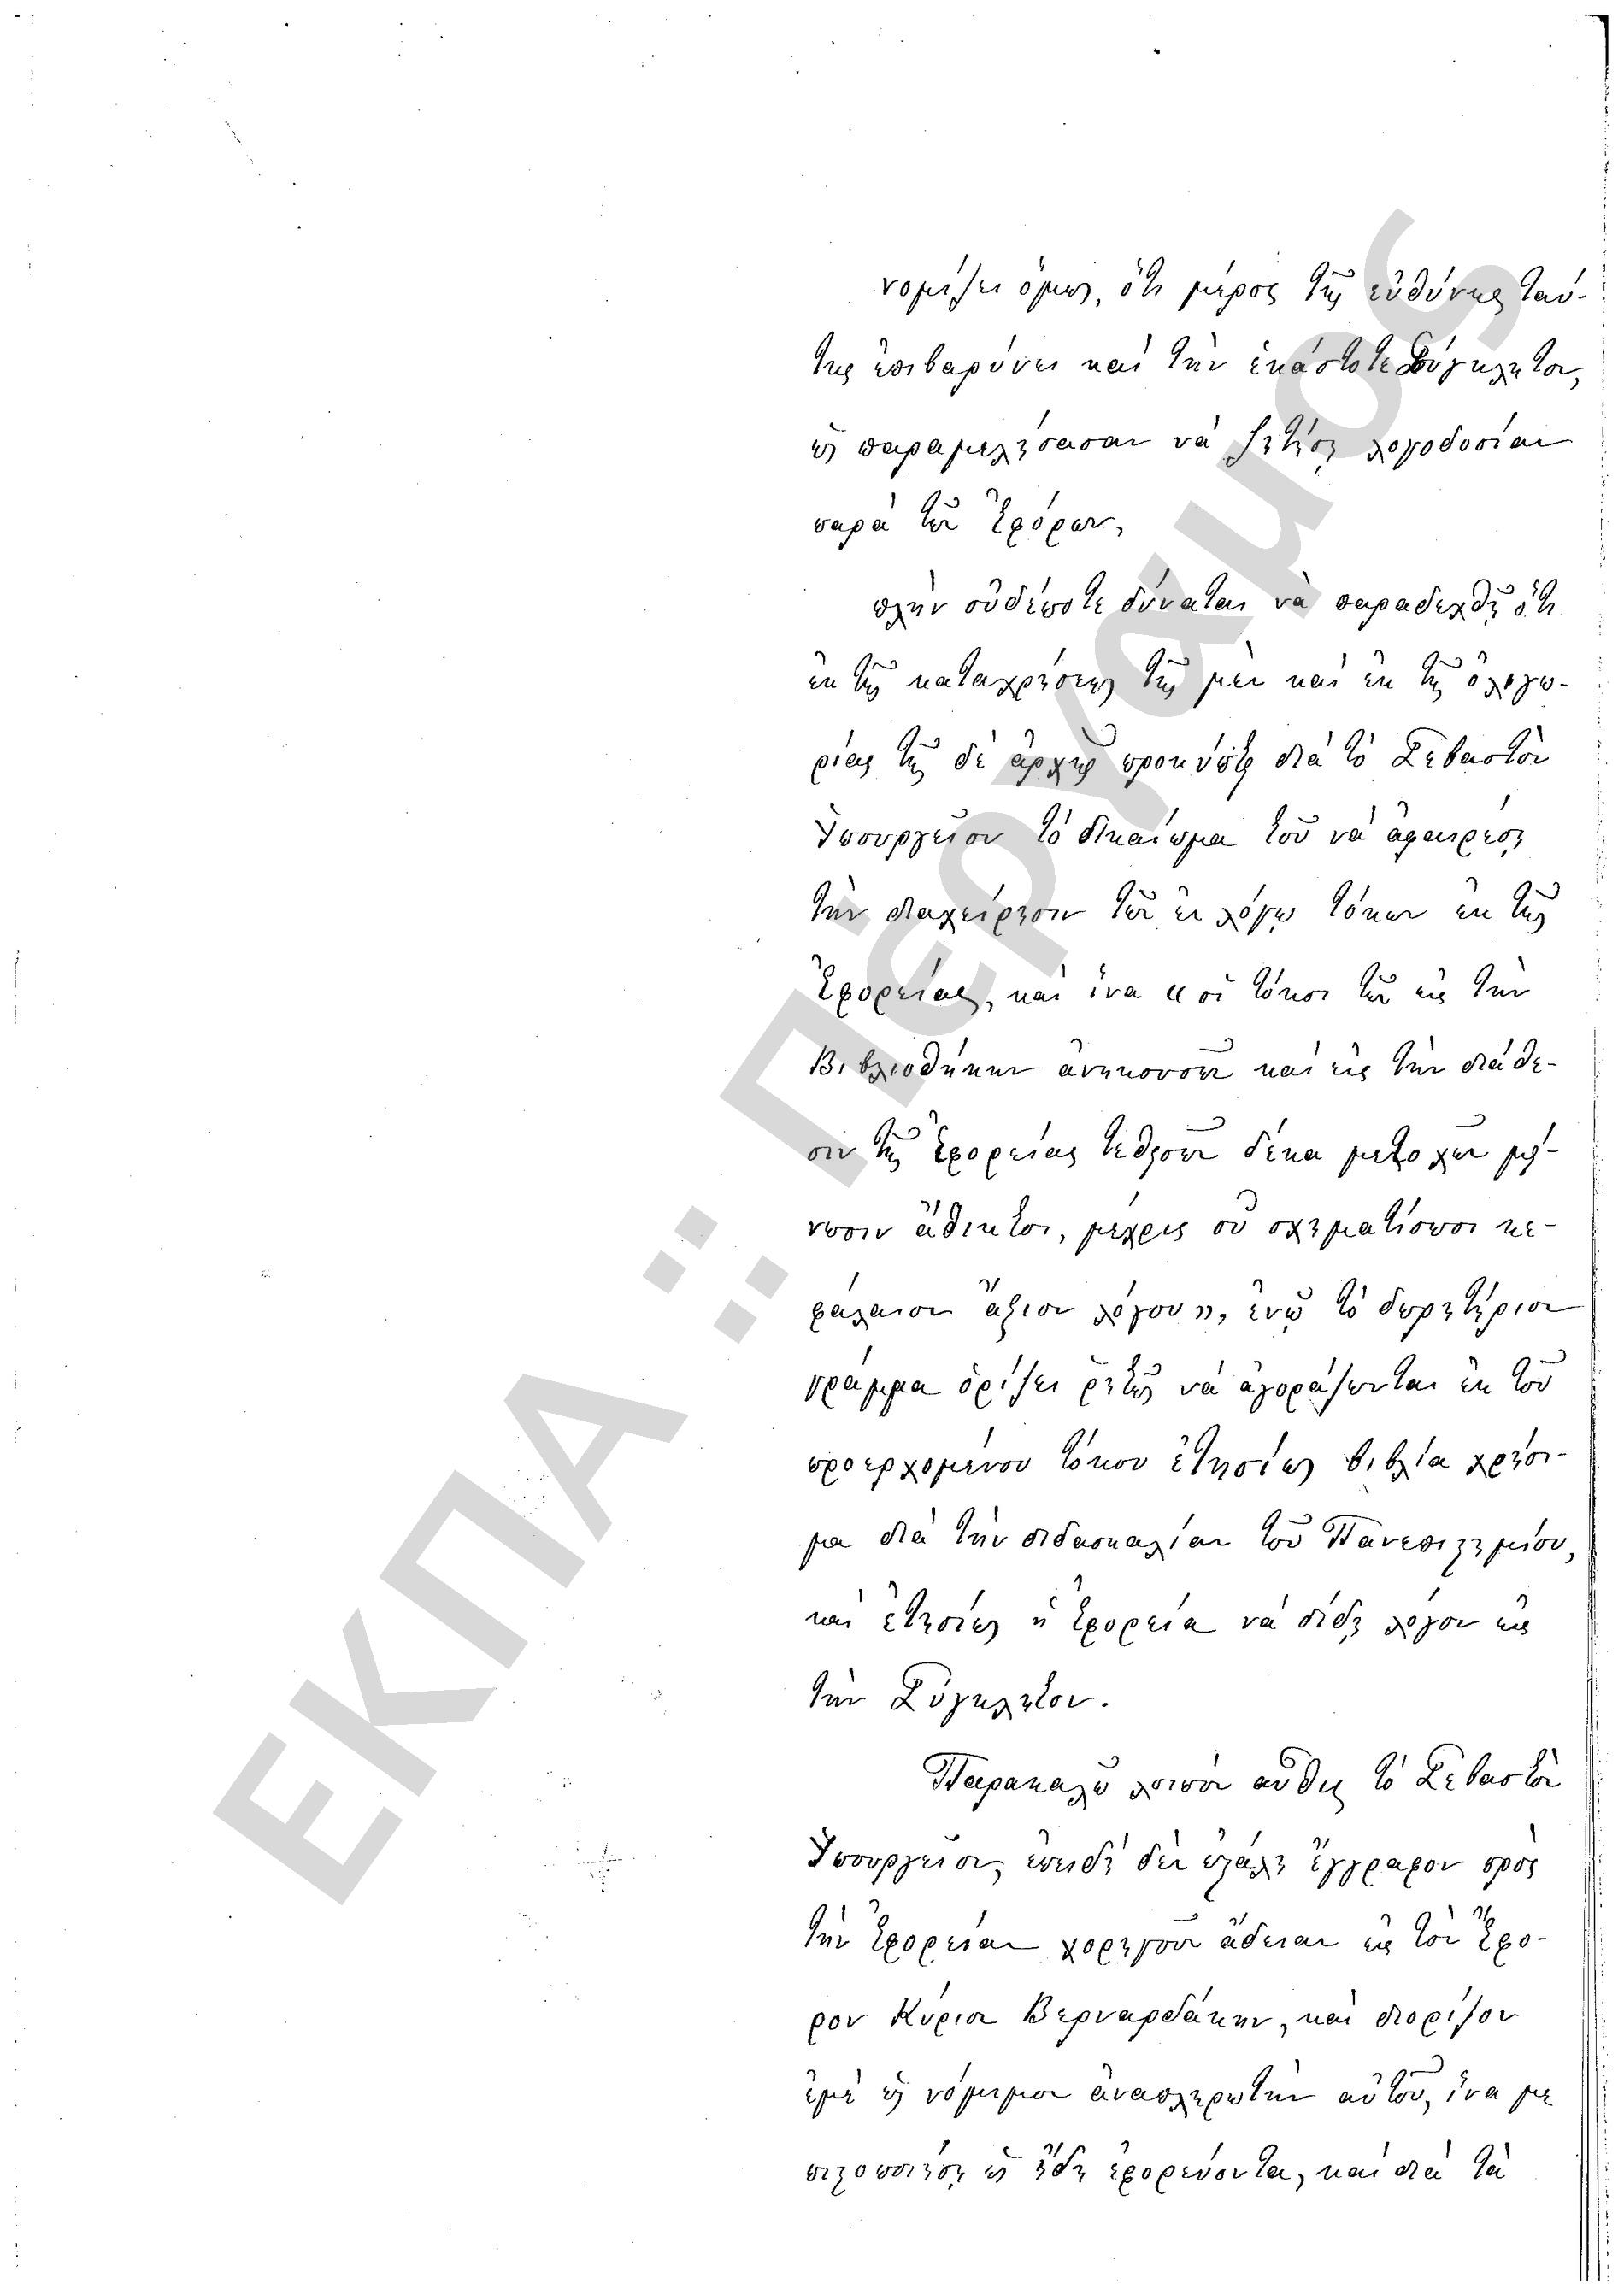 νομίζει ὅμως, ὅτι μέρος τῆς εὐθύνης ταύ-
της ἐπιβαρύνει καὶ τὴν ἑκάστοτε Σύγκλητον,
ὡς παραμελήσασαν νὰ ζητήσῃ λογοδοσίαν
παρὰ τῶν Ἐφόρων,
πλὴν οὐδέποτε δύναται νὰ παραδεχθῇ ὅτι
ἐκ τῆς καταχρήσεως τῆς μὲν καὶ ἐκ τῆς ὀλιγω-
ρίας τῆς δὲ ἀρχῆς προκύπτει διὰ τὸ Σεβαστὸν
Ὑπουργεῖον τὸ δικαίωμα τοῦ νὰ ἀφαιρέσῃ
τὴν διαχείρησιν τῶν ἐν λόγῳ τόκων ἐκ τῆς
Ἐφορείας, καὶ ἵνα «οἱ τόκοι τῶν εἰς τὴν
Βιβλιοθήκην ἀνηκουσῶν καὶ εἰς τὴν διάθε-
σιν τῆς Ἐφορείας τεθεισῶν δέκα μετοχῶν μέ-
νωσιν ἄθικτοι, μέχρις οὗ σχηματίσωσι κε-
φάλαιον ἄξιον λόγου», ἐνῷ τὸ δωρητήριον
γράμμα ὁρίζει ῥητῶς νὰ ἀγοράζωνται ἐκ τοῦ
προερχομένου τόκου ἐτησίως βιβλία χρήσι-
μα διὰ τὴν διδασκαλίαν τοῦ Πανεπιστημίου,
καὶ ἐτησίως ἡ Ἐφορεία νὰ δίδῃ λόγον εἰς
τὴν Σύγκλητον.
Παρακαλῶ λοιπὸν αὖθις τὸ Σεβαστὸν
Ὑπουργεῖον, ἐπειδὴ δὲν ἐστάλη ἔγγραφον πρὸς
τὴν Ἐφορείαν χορηγοῦν ἄδειαν εἰς τὸν Ἔφο-
ρον Κύριον Βερναρδάκην, καὶ διορίζον
ἐμὲ ὡς νόμιμον ἀναπληρωτὴν αὐτοῦ, ἵνα με
πιστοποιήσῃ ὡς ἤδη ἐφορεύοντα, καὶ διὰ τὰ
ΕΚΠΑ :: Περγαμος